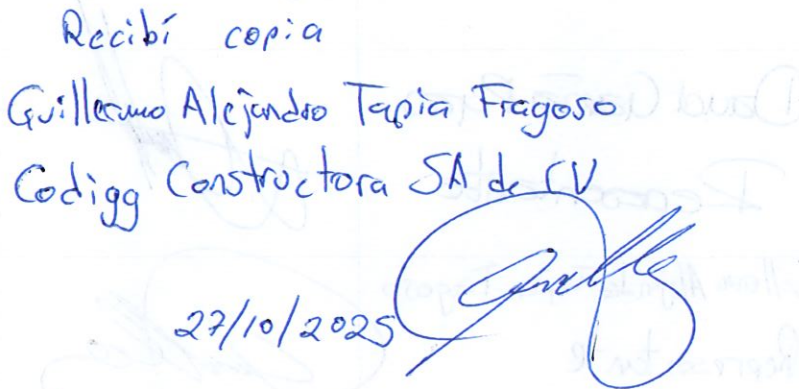 Recibí copia
Guillermo Alejandro Tapia Fragoso
Codigg Constructora SA de CV
27/10/2025